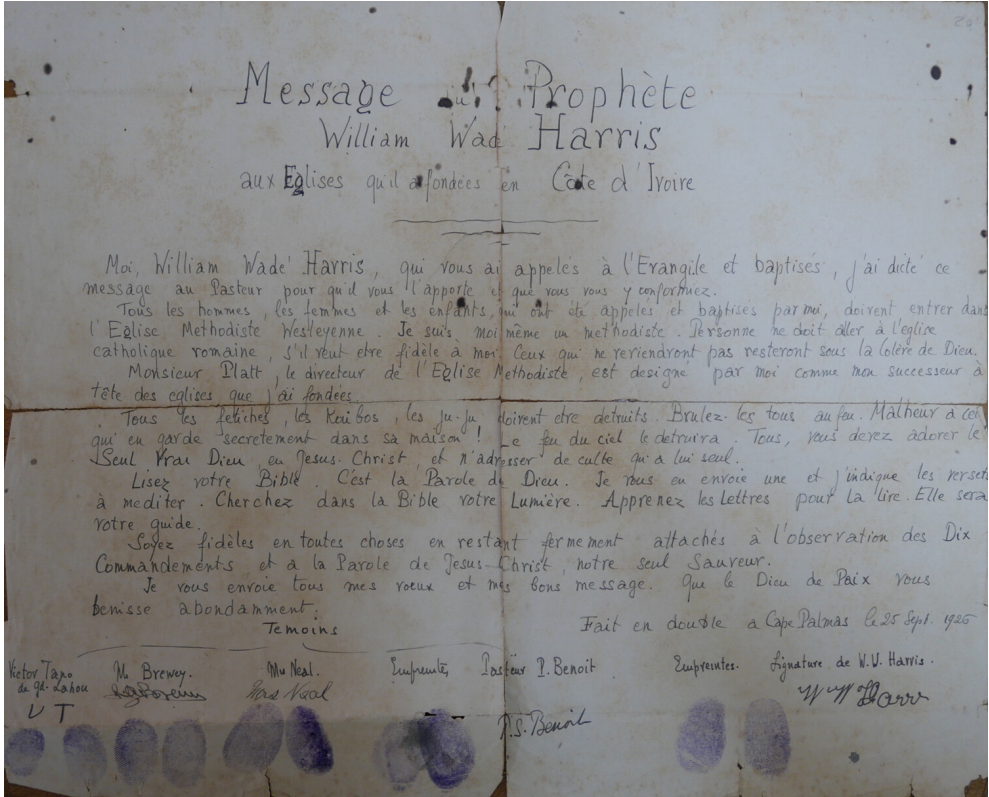 Message du Prophète
William Wadé Harris
aux Eglises qu'il a fondées en Côte d'Ivoire
Moi, William Wadé Harris, qui vous ai appelés à l'Evangile et baptisés, j'ai dicté ce
message au Pasteur pour qu'il vous l'apporte et que vous vous y conformiez.
Tous les hommes, les femmes et les enfants, qui ont été appelés et baptisés par moi, doivent entrer dans
l'Eglise Methodiste Wesleyenne. Je suis moi même un methodiste. Personne ne doit aller à l'église
catholique romaine, s'il veut etre fidèle à moi. Ceux qui ne reviendront pas resteront sous la Colère de Dieu.
Monsieur Platt, le directeur de l'Eglise Methodiste, est designé par moi comme mon successeur à
tête des eglises que j'ai fondées.
Tous les fetiches, les Koubos, les ju-ju doivent etre detruits. Brulez-les tous au feu. Malheur à celui
qui en garde secretement dans sa maison ! Le feu du ciel le detruira. Tous, vous devez adorer le
Seul Vrai Dieu, en Jesus-Christ, et n'adresser de culte qu'a lui seul.
Lisez votre Bible. C'est la Parole de Dieu. Je vous en envoie une et j'indique les versets
à mediter. Cherchez dans la Bible votre Lumière. Apprenez les Lettres pour la lire. Elle sera
votre guide.
Soyez fidèles en toutes choses en restant fermement attachés à l'observation des Dix
Commandements et a la Parole de Jesus-Christ, notre seul Sauveur.
Je vous envoie tous mes voeux et mes bons message. Que le Dieu de Paix vous
benisse abondamment.
Fait en double a Cape Palmas le 25 Sept. 1926
Temoins
Victor Tano M. Brewey. Mu Neal. Empreinte Pasteur P. Benoit Empreintes. Signature de W.V. Harris.
de gd. Lahou
V T Neal P.S. Benoit W W Harris